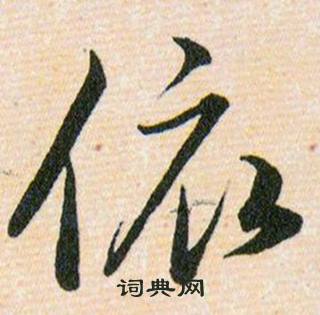 依
词典网